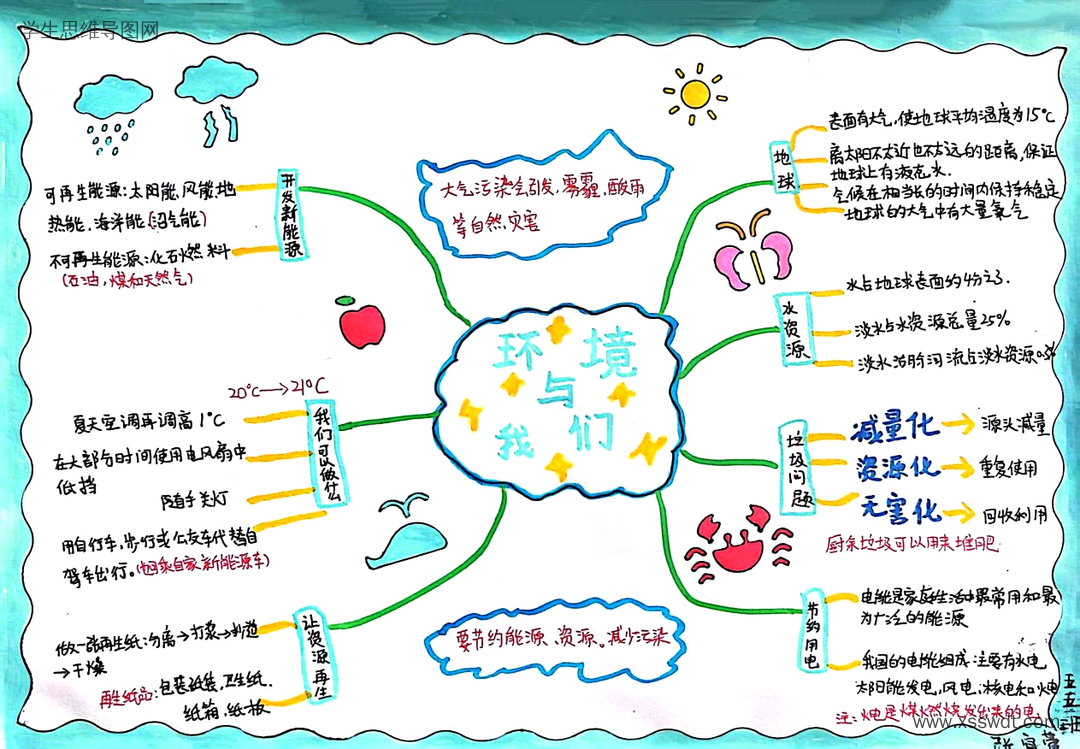 学生思维导图网
环境
与
我们
大气污染会引发,雾霾,酸雨
等自然灾害
要节约能源、资源。减少污染
开发新能源
可再生能源:太阳能,风能,地
热能,海洋能(沼气能)
不可再生能源:化石燃料
(石油,煤和天然气)
20°C→21°C
我们可以做什么
夏天空调再调高1°C
在大部分时间使用电风扇中
低挡
随手关灯
用自行车,步行或公交车代替自
驾车出行。
让资源再生
做一张再生纸:分离→打浆→抄造
→干燥
再生纸品:包装纸袋,卫生纸.
纸箱.纸板
地球
表面有大气,使地球平均温度为15°C
离太阳不太近也不太远的距离,保证
地球上有液态水.
气候在相当长的时间内保持稳定
地球的大气中有大量氧气
水资源
水占地球表面的4分之3.
淡水占水资源总量2.5%
淡水湖和河流占淡水资源0.3%
垃圾问题
减量化→源头减量
资源化→重复使用
无害化→回收利用
厨余垃圾可以用来堆肥
节约用电
电能是家庭生活中最常用和最
为广泛的能源
我国的电能组成:主要有水电
太阳能发电,风电,核电和火电
注:火电是煤燃烧发出来的电
五五班
www.xsswdt.com